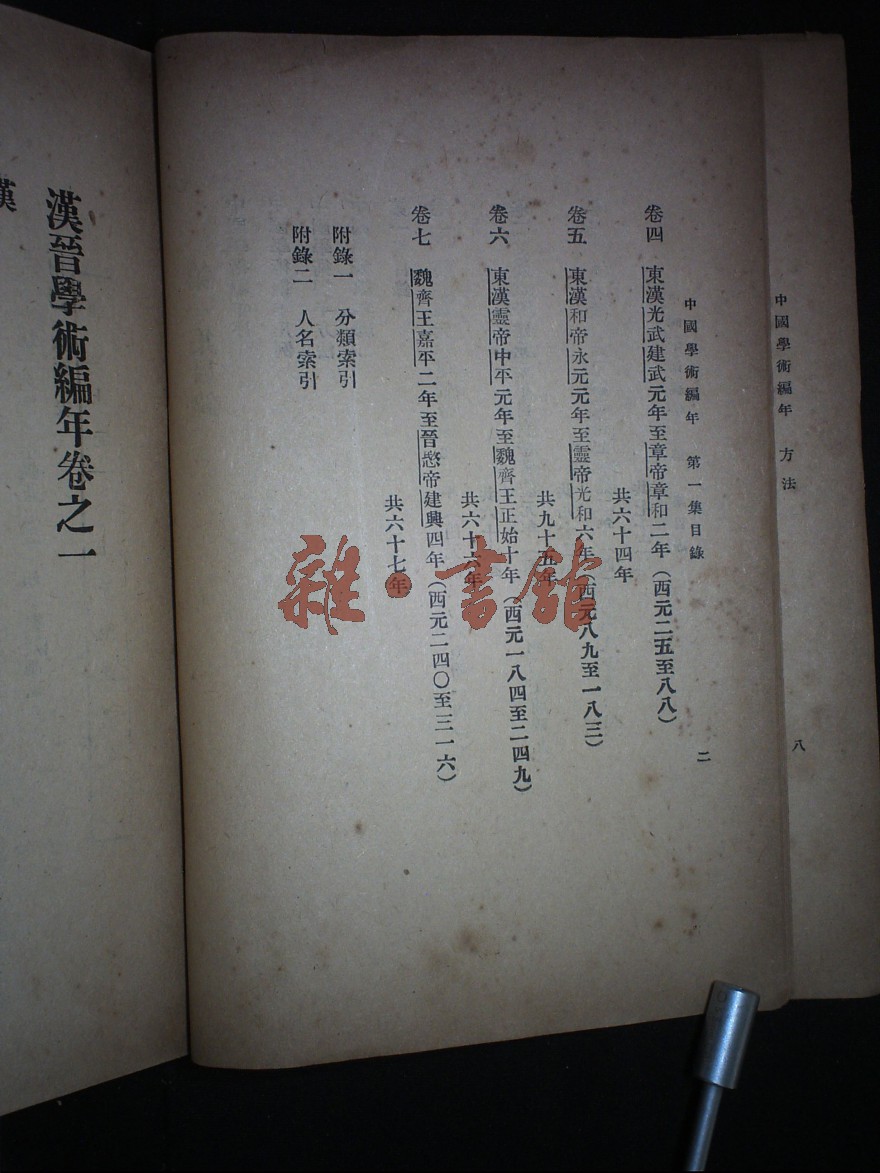 中國學術編年 方法
八
中國學術編年 第一集目錄
二
卷四 東漢光武建武元年至章帝章和二年（西元二五至八八）
共六十四年
卷五 東漢和帝永元元年至靈帝光和六年（西元八九至一八三）
共九十五年
卷六 東漢靈帝中平元年至魏齊王正始十年（西元一八四至二四九）
共六十六年
卷七 魏齊王嘉平二年至晉愍帝建興四年（西元二四〇至三一六）
共六十七年
附錄一 分類索引
附錄二 人名索引
漢晉學術編年卷之一
漢
雜·書館